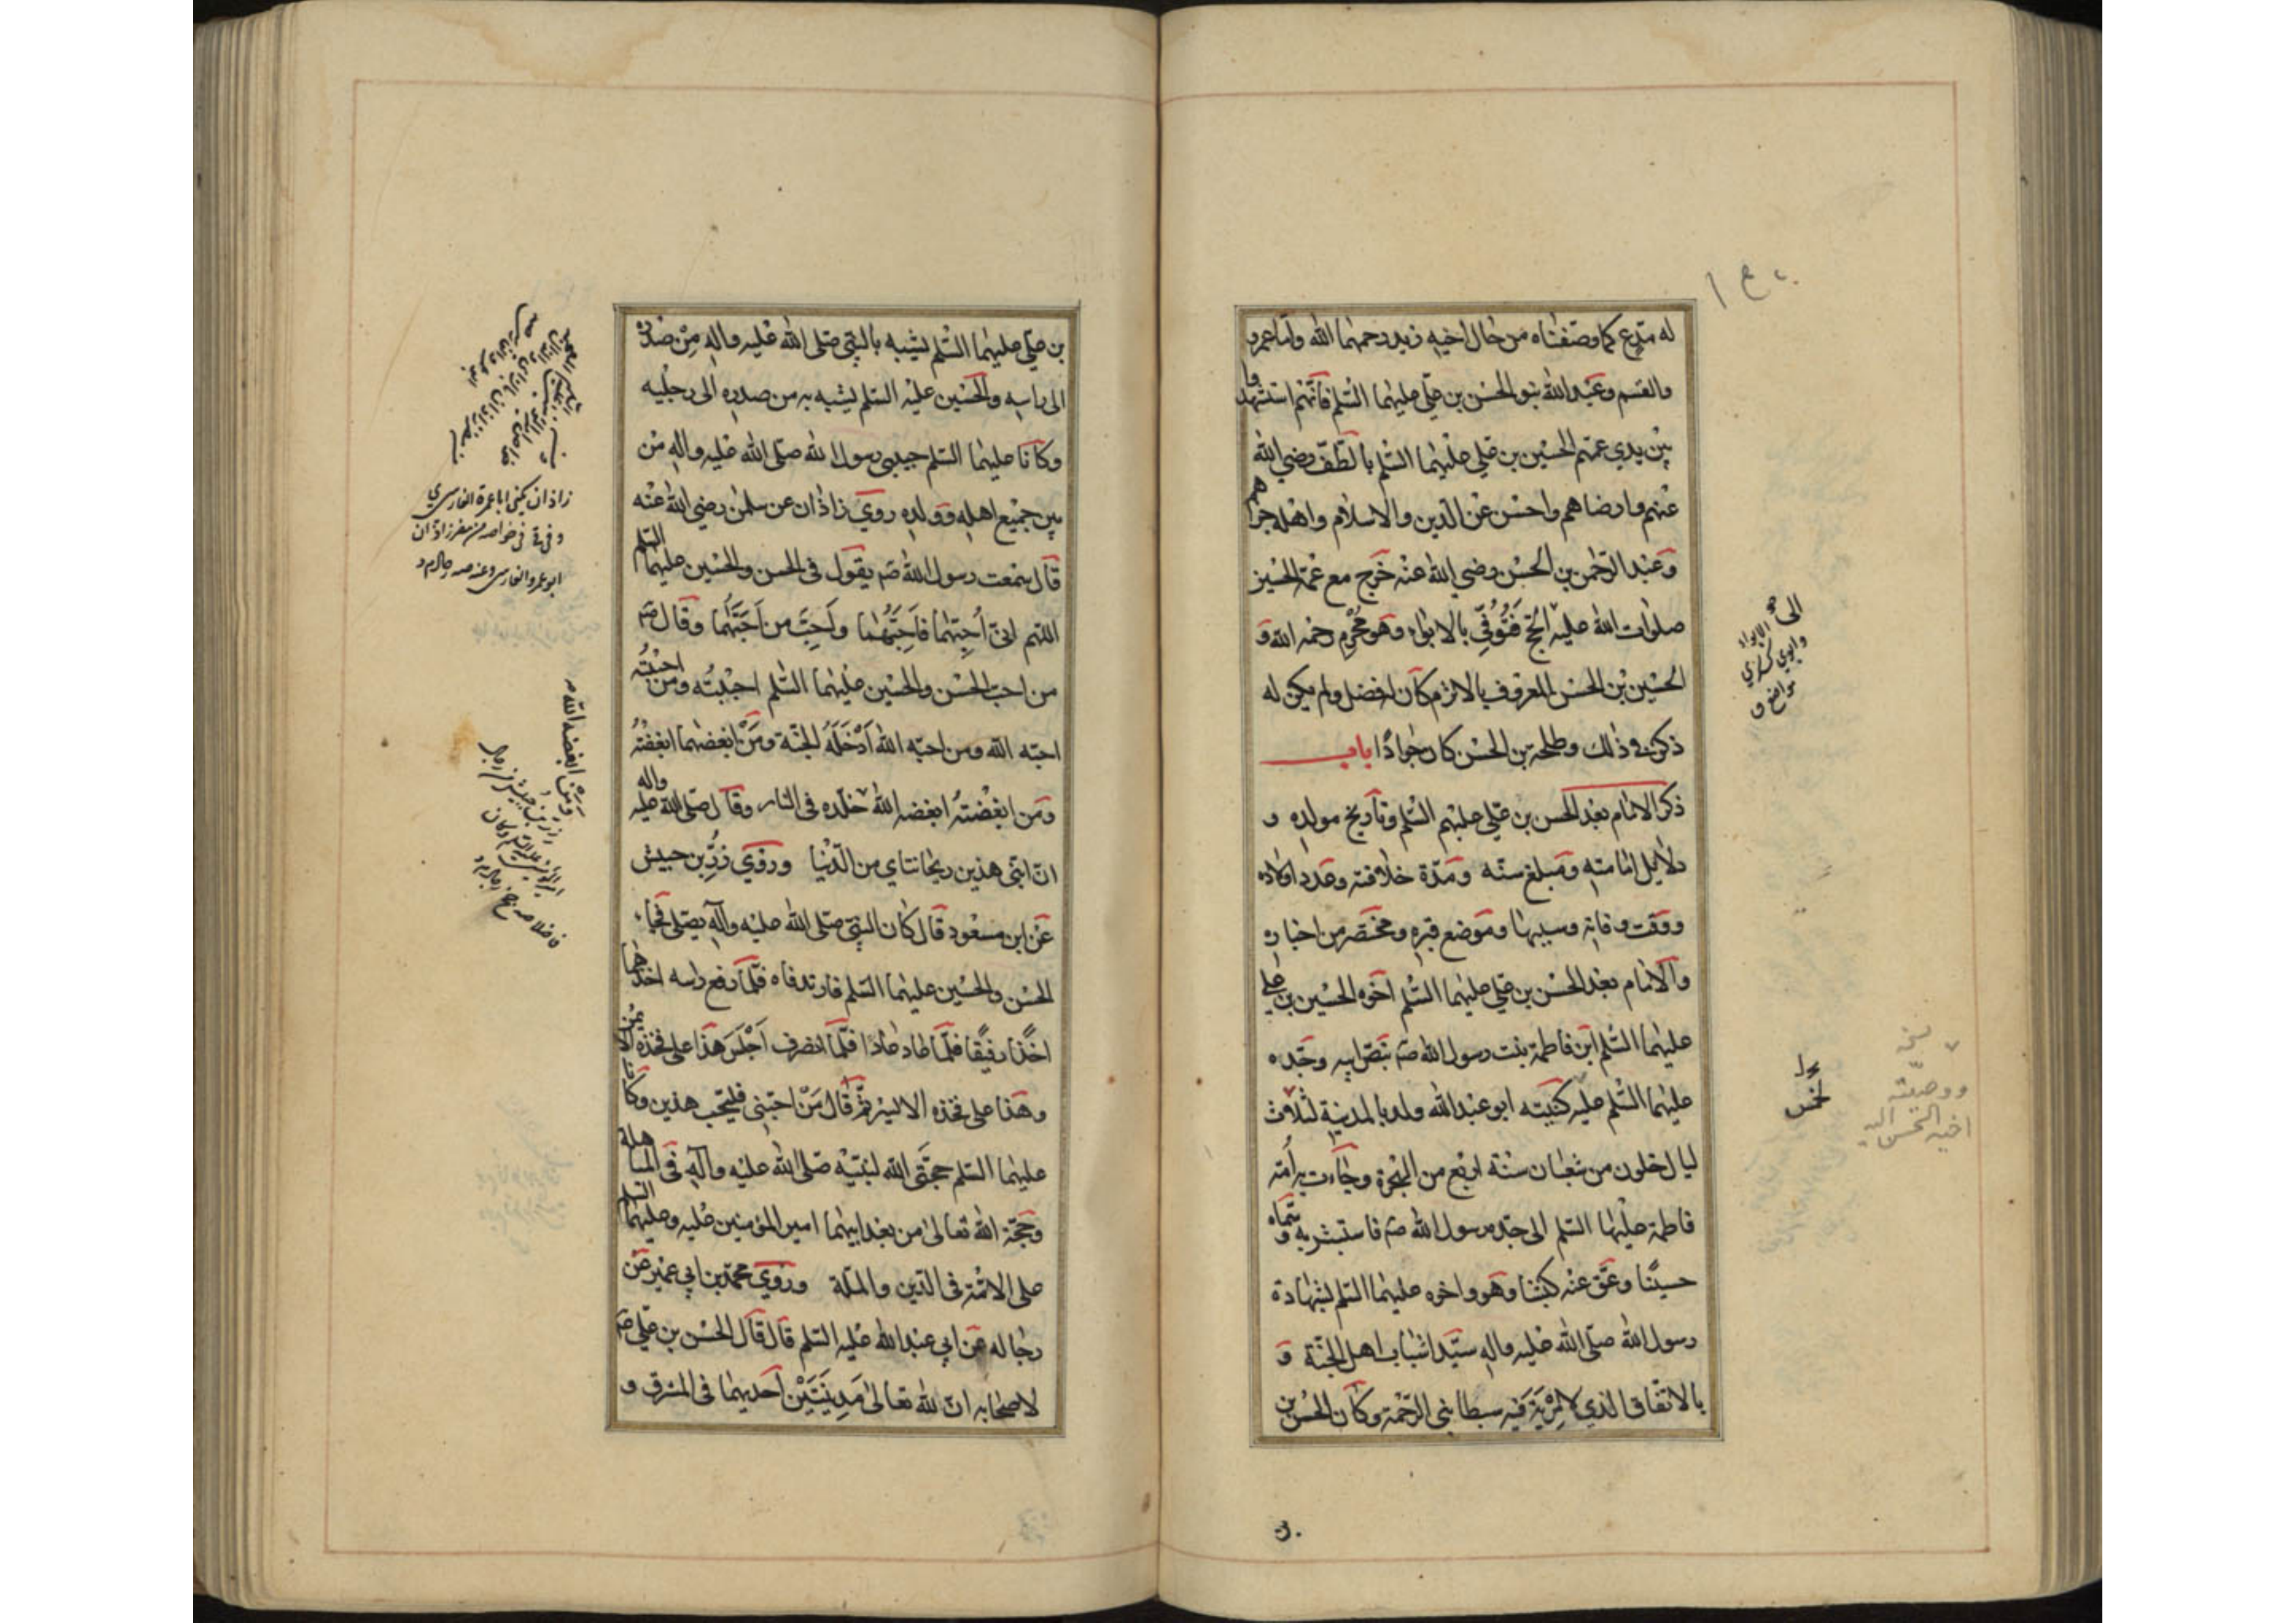 له مدع كما وصفناه من حال اخيه زيد رحمهما الله واما عمرو
والقسم وعبد الله بنو الحسن بن علي عليهما السلم فانهم استشهدوا
بين يدي عمهم الحسين بن علي عليهما السلم بالطف رضي الله
عنهم وارضاهم واحسن عن الدين والاسلام واهله جزاهم
وعبد الرحمن بن الحسن رضي الله عنه خرج مع عمه الحسين
صلوات الله عليه الحج فتوفي بالابواء وهو محرم رحمه الله و
الحسين بن الحسن المعروف بالاثرم كان له فضل ولم يكن له
ذكر في ذلك وطلحة بن الحسن كان جوادا باب
ذكر الامام بعد الحسن بن علي عليهم السلم وتاريخ مولده و
دلايل امامته ومبلغ سنه ومدة خلافته وعدد اولاده
ووقت وفاته وسببها وموضع قبره ومختصر من اخباره
والامام بعد الحسن بن علي عليهما السلم اخوه الحسين بن علي
عليهما السلم ابن فاطمة بنت رسول الله صم بنص ابيه وجده
عليهما السلم عليه كنيته ابو عبد الله ولد بالمدينة لثلاث
ليال خلون من شعبان سنة اربع من الهجرة وجاءت به امه
فاطمة عليها السلم الى جده رسول الله صم فاستبشر به وسماه
حسينا وعق عنه كبشا وهو واخوه عليهما السلم بشهادة
رسول الله صلى الله عليه واله سيدا شباب اهل الجنة و
بالاتفاق الذي لا مرية فيه سبطا نبي الرحمة وكان الحسن بن
الى
الابواء
ووصيته
اخيه الحسن اليه
بن علي عليهما السلم يشبه بالنبي صلى الله عليه واله من صدره
الى راسه والحسين عليه السلم يشبه به من صدره الى رجليه
وكانا عليهما السلم حبيبي رسول الله صلى الله عليه واله من
بين جميع اهله وولده روي زاذان عن سلمن رضي الله عنه
قال سمعت رسول الله صم يقول في الحسن والحسين عليهما السلم
اللهم اني احبهما فاحبهما واحب من احبهما وقال صم
من احب الحسن والحسين عليهما السلم احببته ومن احببته
احبه الله ومن احبه الله ادخله الجنة ومن ابغضهما ابغضته
ومن ابغضته ابغضه الله خلده في النار وقال صلى الله عليه واله
ان ابني هذين ريحانتاي من الدنيا وروي زر بن حبيش
عن ابن مسعود قال كان النبي صلى الله عليه وآله يصلي فجاء
الحسن والحسين عليهما السلم فارتدفاه فلما رفع راسه اخذهما
اخذا رفيقا فلما عاد عادا فلما انصرف اجلس هذا على فخذه الايمن
وهذا على فخذه الايسر ثم قال من احبني فليحب هذين وكانا
عليهما السلم حجتي الله لنبيه صلى الله عليه وآله في المباهلة
وحجة الله تعالى من بعد ابيهما امير المؤمنين عليه وعليهما السلم
على الامة في الدين والملة وروي محمد بن ابي عمير عن
رجاله عن ابي عبد الله عليه السلم قال قال الحسن بن علي صم
لاصحابه ان لله تعالى مدينتين احديهما في المشرق و
زاذان يكنى ابا عمرة الفارسي
ومن ابغضه الله